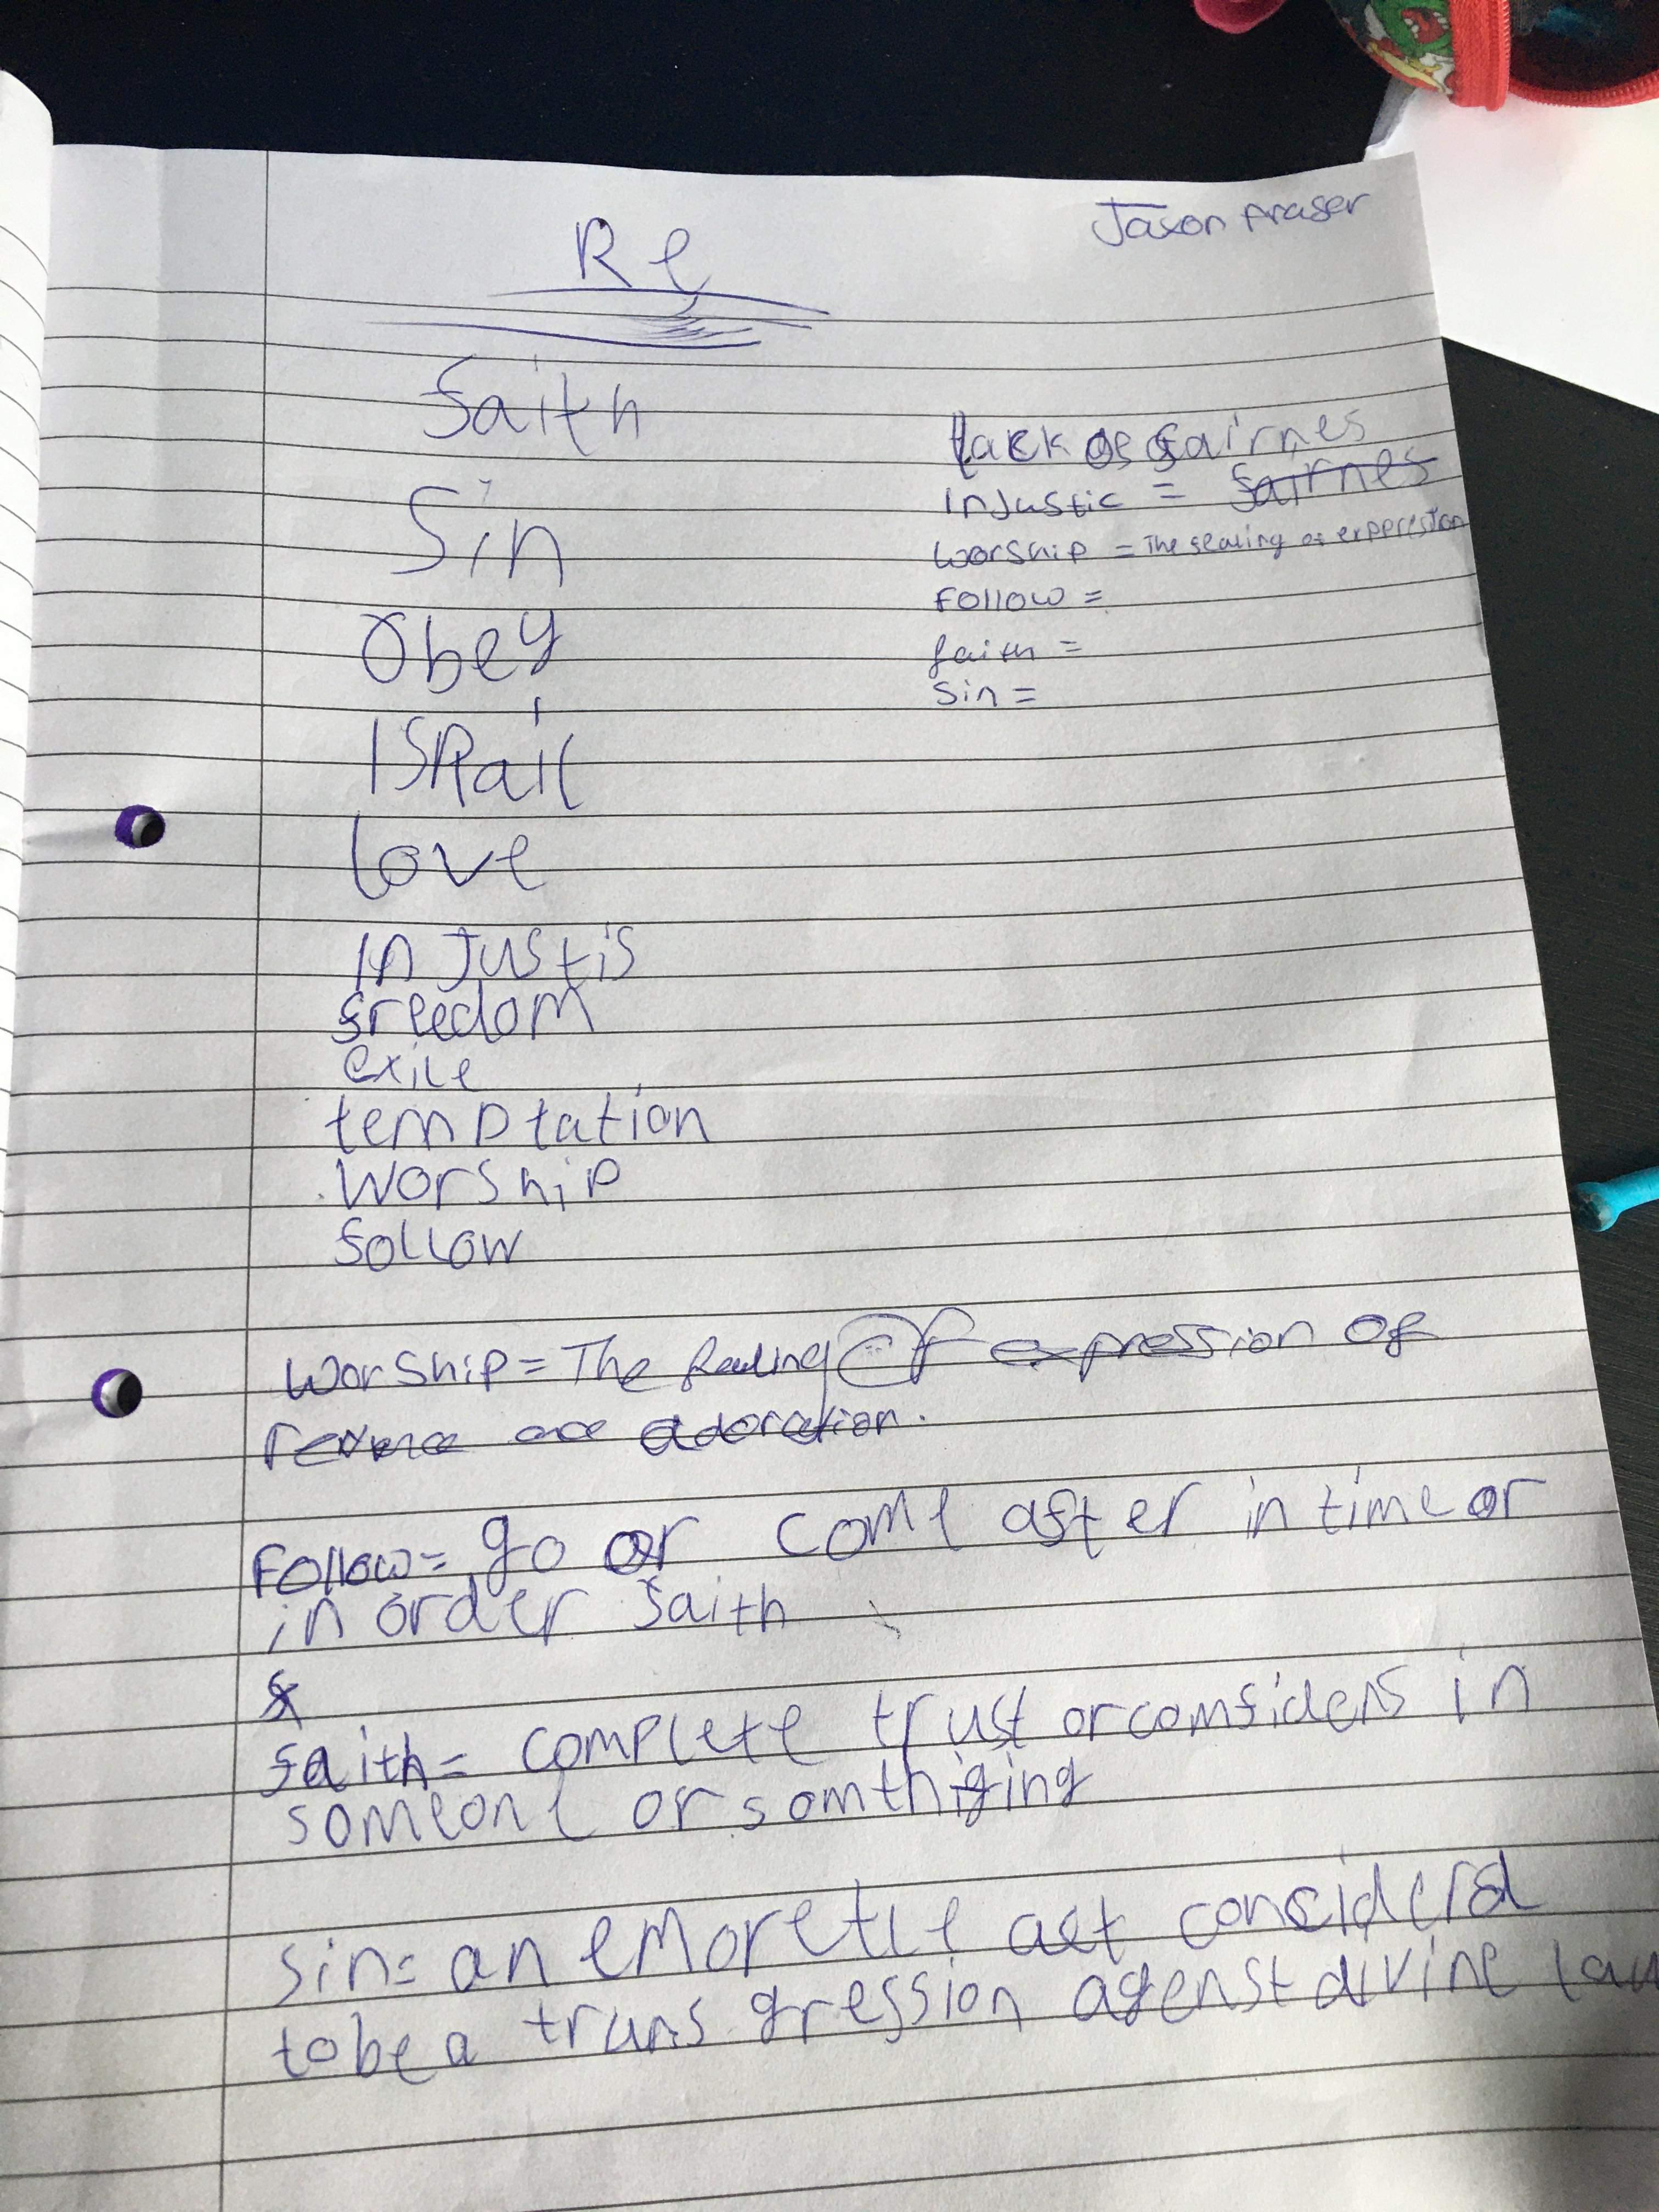 Re
Jaxon fraser
faith
Sin
Obey
ISRail
love
in Justis
freedom
exile
temptation
Worship
follow
lack of fairnes
inJustic = fairnes
worship = The fealing of expperestion
Follow =
faith =
Sin =
Worship = The fealing of expression of
adoration.
Follow = go or come after in time or
in order faith
faith = complete trust or comfidens in
someone or somthiging
sin = an emoretle act considerd
to be a trans gression agenst divine law